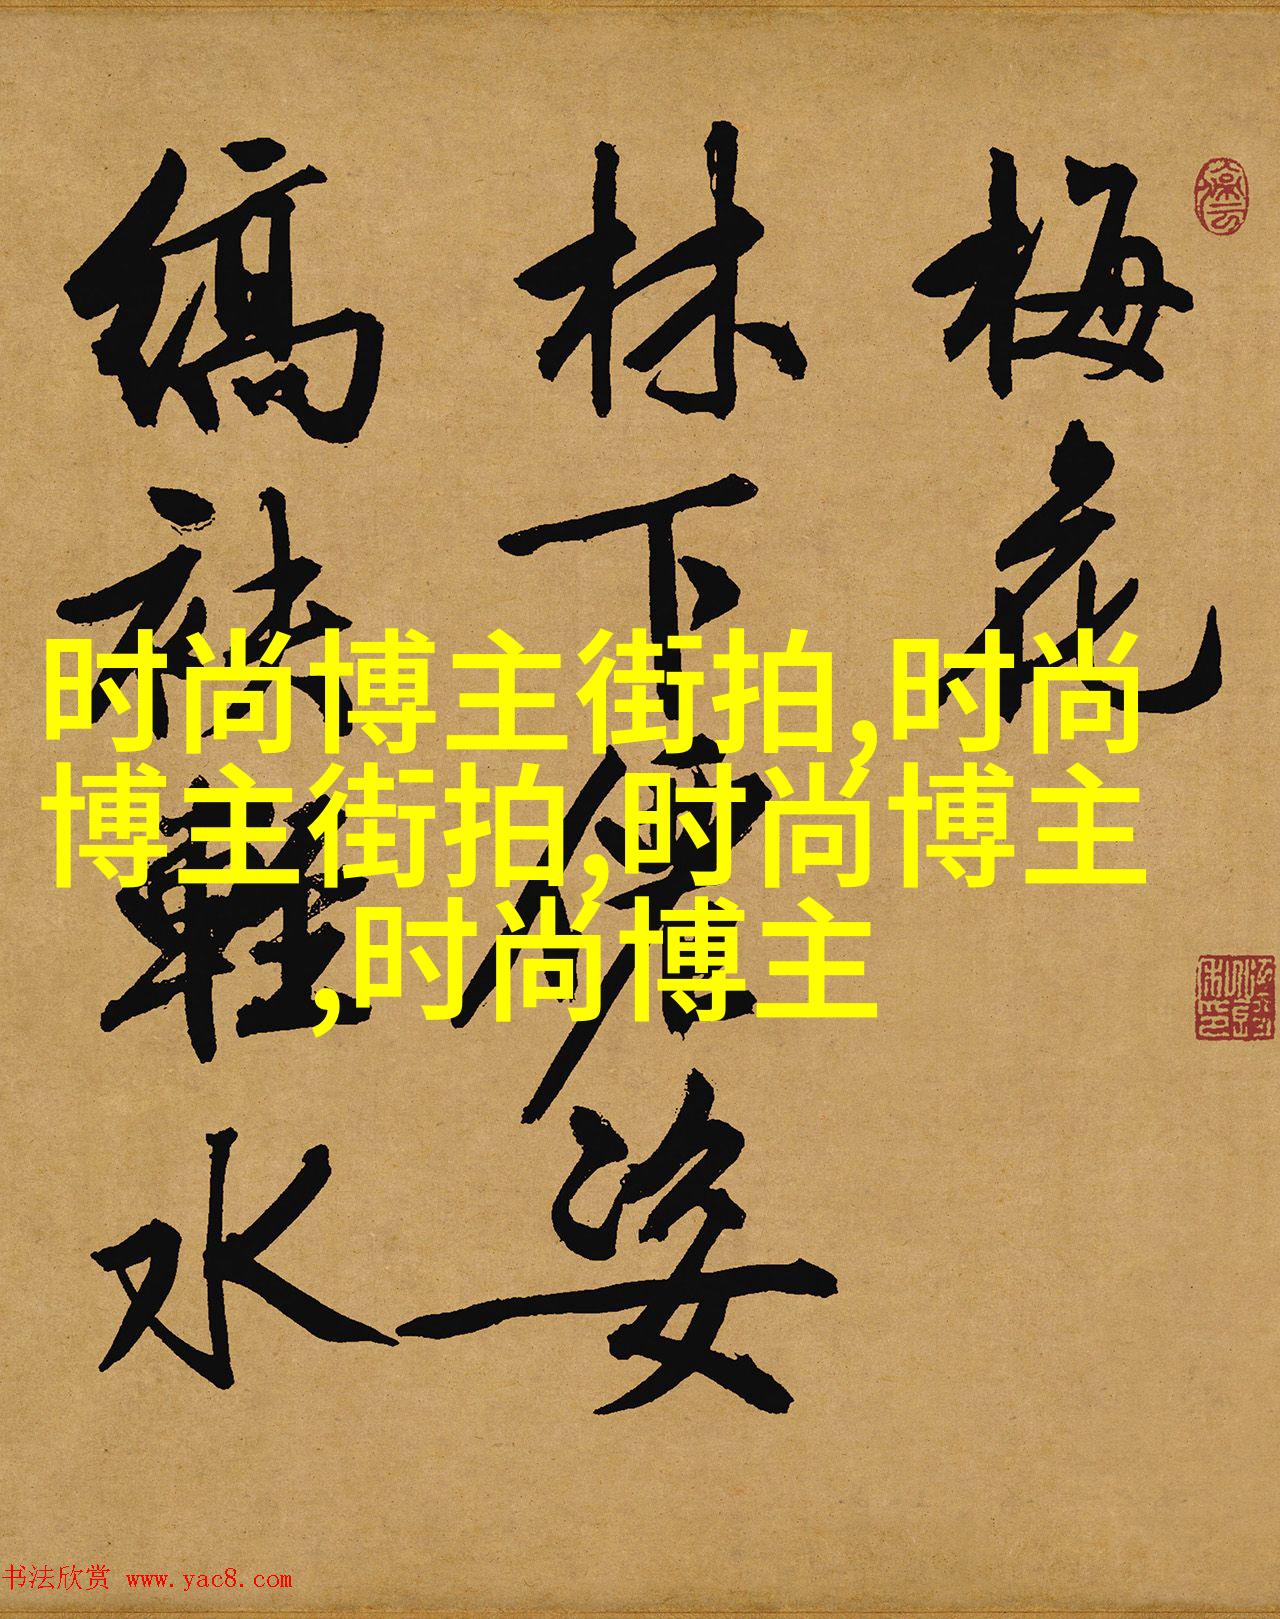 梅花
林下仙姿
縞袂輕水
时尚博主街拍,时尚
博主街拍,时尚博主
,时尚博主
书法欣赏 www.yac8.com